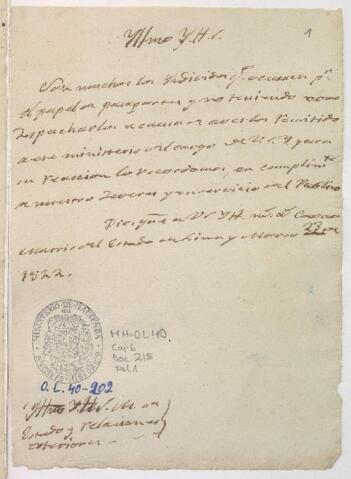 Yllmo Y. H. S.
1
Son muchos los Yndividos q.e ocurren p.r
el papel de pasaportes y no teniendo como
Despacharlos a causa de averlos remitido
a ese ministerio del cargo de V.S.Y. para
su
lo recordamos, en cumplim.to
de nuestro dever y en servicio del Publico
Dios gue a V.S.Y. H. m.s a.s
del Estado en Lima y Marzo 22 de
1822.
MINISTERIO DE HACIENDA
MH-OL 40
Caj. 6
Doc. 218
Fol. 1
O.L. 40-202
Yllmo Y. H. S. M. de
Estado y relaciones
exteriores